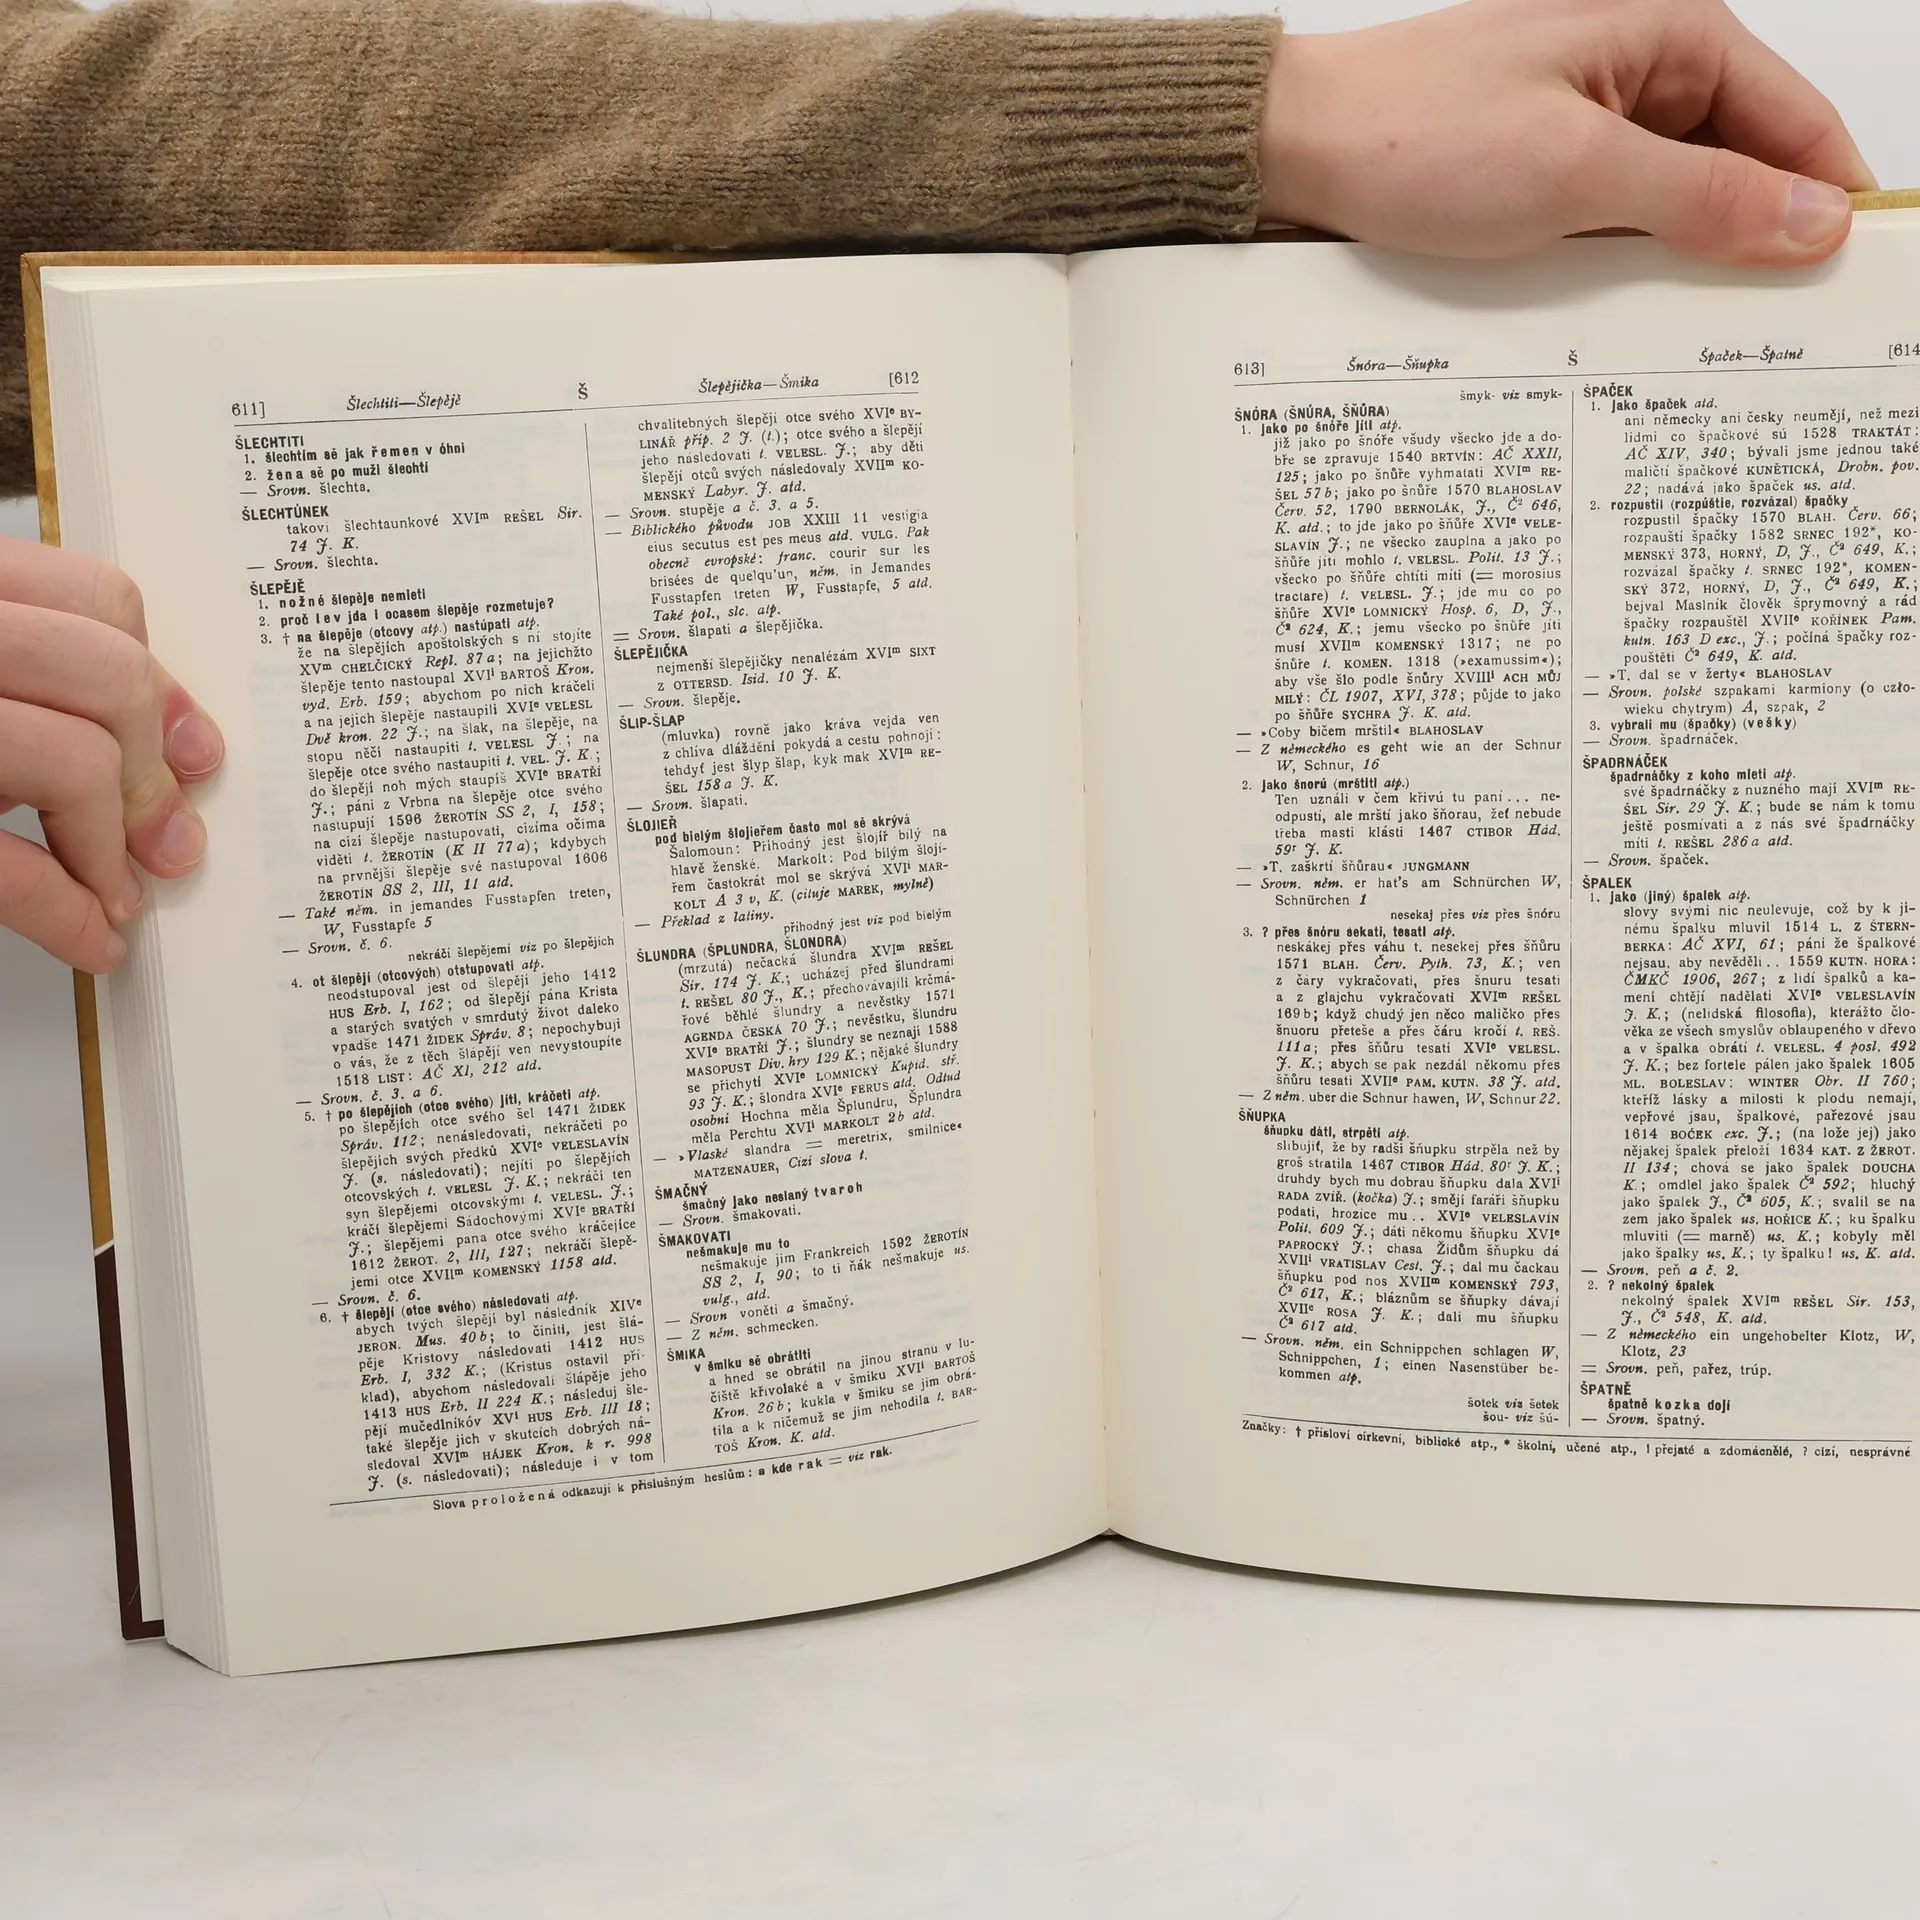 611] Šlechtiti—Šlepějě Š Šlepějička—Šmika [612
ŠLECHTITI
1. šlechtím sě jak řemen v óhni
2. žena sě po muži šlechtí
— Srovn. šlechta.
ŠLECHTÚNEK
takoví šlechtaunkové XVIᵐ REŠEL Sir.
74 J. K.
— Srovn. šlechta.
ŠLEPĚJĚ
1. nožné šlepěje nemleti
2. proč lev jda i ocasem šlepěje rozmetuje?
3. † na šlepěje (otcovy atp.) nastúpati atp.
že na šlepějích apoštolských s ní stojíte
XVᵐ CHELČICKÝ Repl. 87a; na jejichžto
šlepěje tento nastoupal XVIⁱ BARTOŠ Kron.
vyd. Erb. 159; abychom po nich kráčeli
a na jejich šlepěje nastaupili XVIᵉ VELESL
Dvě kron. 22 J.; na šlak, na šlepěje, na
stopu něčí nastaupiti t. VELESL J.; na
šlepěje otce svého nastaupiti t. VEL. J. K.;
do šlepějí noh mých staupíš XVIᵉ BRATŘÍ
J.; páni z Vrbna na šlepěje otce svého
nastupují 1596 ŽEROTÍN SS 2, I, 158;
na cizí šlepěje nastupovati, cizíma očima
viděti t. ŽEROTÍN (K II 77a); kdybych
na prvnější šlepěje své nastupoval 1606
ŽEROTÍN SS 2, III, 11 atd.
— Také něm. in jemandes Fusstapfen treten,
W, Fusstapfe 5
— Srovn. č. 6.
nekráčí šlepějemi viz po šlepějích
4. ot šlepějí (otcových) otstupovati atp.
neodstupoval jest od šlepějí jeho 1412
HUS Erb. I, 162; od šlepějí pána Krista
a starých svatých v smrdutý život daleko
vpadše 1471 ŽIDEK Správ. 8; nepochybuji
o vás, že z těch šlápějí ven nevystoupíte
1518 LIST: AČ XI, 212 atd.
— Srovn. č. 3. a 6.
5. † po šlepějích (otce svého) jíti, kráčeti atp.
po šlepějích otce svého šel 1471 ŽIDEK
Správ. 112; nenásledovati, nekráčeti po
šlepějích svých předků XVIᵉ VELESLAVÍN
J. (s. následovati); nejíti po šlepějích
otcovských t. VELESL J. K.; nekráčí ten
syn šlepějemi otcovskými t. VELESL. J.;
kráčí šlepějemi Sádochovými XVIᵉ BRATŘÍ
J.; šlepějemi pana otce svého kráčejíce
1612 ŽEROT. 2, III, 127; nekráčí šlepě-
jemi otce XVIIᵐ KOMENSKÝ 1158 atd.
— Srovn. č. 6.
6. † šlepějí (otce svého) následovati atp.
abych tvých šlepějí byl následník XIVᵉ
JERON. Mus. 40b; to činiti, jest šlá-
pěje Kristovy následovati 1412 HUS
Erb. I, 332 K.; (Kristus ostavil pří-
klad), abychom následovali šlápěje jeho
1413 HUS Erb. II 224 K.; následuj šle-
pějí mučedlníkóv XVⁱ HUS Erb. III 18;
také šlepěje jich v skutcích dobrých ná-
sledoval XVIᵐ HÁJEK Kron. k r. 998
J. (s. následovati); následuje i v tom
chvalitebných šlepějí otce svého XVIᵉ BY-
LINÁŘ příp. 2 J. (t.); otce svého a šlepějí
jeho následovati t. VELESL. J.; aby děti
šlepějí otců svých následovaly XVIIᵐ KO-
MENSKÝ Labyr. J. atd.
— Srovn. stupěje a č. 3. a 5.
— Biblického původu JOB XXIII 11 vestigia
eius secutus est pes meus atd. VULG. Pak
obecně evropské: franc. courir sur les
brisées de quelqu'un, něm. in Jemandes
Fusstapfen treten W, Fusstapfe, 5 atd.
Také pol., slc. atp.
= Srovn. šlapati a šlepějička.
ŠLEPĚJIČKA
nejmenší šlepějičky nenalézám XVIᵐ SIXT
Z OTTERSD. Isid. 10 J. K.
— Srovn. šlepěje.
ŠLIP-ŠLAP
(mluvka) rovně jako kráva vejda ven
z chlíva dláždění pokydá a cestu pohnojí:
tehdyť jest šlyp šlap, kyk mak XVIᵐ RE-
ŠEL 158a J. K.
— Srovn. šlapati.
ŠLOJIEŘ
pod bielým šlojieřem často mol sě skrývá
Šalomoun: Příhodný jest šlojíř bílý na
hlavě ženské. Markolt: Pod bílým šloji-
řem častokrát mol se skrývá XVIⁱ MAR-
KOLT A 3 v, K. (cituje MAREK, mylně)
— Překlad z latiny.
příhodný jest viz pod bielým
ŠLUNDRA (ŠPLUNDRA, ŠLONDRA)
(mrzutá) nečacká šlundra XVIᵐ REŠEL
Sir. 174 J. K.; ucházej před šlundrami
t. REŠEL 80 J., K.; přechovávajíli krčmá-
řové běhlé šlundry a nevěstky 1571
AGENDA ČESKÁ 70 J.; nevěstku, šlundru
XVIᵉ BRATŘÍ J.; šlundry se neznají 1588
MASOPUST Div. hry 129 K.; nějaké šlundry
se přichytí XVIᵉ LOMNICKÝ Kupid. stř.
93 J. K.; šlondra XVIᵉ FERUS atd. Odtud
osobní Hochna měla Šplundru, Šplundra
měla Perchtu XVIⁱ MARKOLT 2b atd.
— »Vlaské slandra = meretrix, smilnice«
MATZENAUER, Cizí slova t.
ŠMAČNÝ
šmačný jako neslaný tvaroh
— Srovn. šmakovati.
ŠMAKOVATI
nešmakuje mu to
nešmakuje jim Frankreich 1592 ŽEROTÍN
SS 2, I, 90; to ti ňák nešmakuje us.
vulg., atd.
— Srovn voněti a šmačný.
— Z něm. schmecken.
ŠMIKA
v šmiku sě obrátiti
a hned se obrátil na jinou stranu v lu-
čiště křivolaké a v šmiku XVIⁱ BARTOŠ
Kron. 26b; kukla v šmiku se jim obrá-
tila a k ničemuž se jim nehodila t. BAR-
TOŠ Kron. K. atd.
Slova proložená odkazují k příslušným heslům: a kde rak = viz rak.
613] Šnóra—Šňupka Š Špaček—Špatně [614
šmyk- viz smyk-
ŠNÓRA (ŠNÚRA, ŠŇŮRA)
1. jako po šnóře jíti atp.
již jako po šnóře všudy všecko jde a do-
bře se zpravuje 1540 BRTVÍN: AČ XXII,
125; jako po šnůře vyhmatati XVIᵐ RE-
ŠEL 57b; jako po šnůře 1570 BLAHOSLAV
Červ. 52, 1790 BERNOLÁK, J., Č² 646,
K. atd.; to jde jako po šňůře XVIᵉ VELE-
SLAVÍN J.; ne všecko zauplna a jako po
šňůře jíti mohlo t. VELESL. Polit. 13 J.;
všecko po šňůře chtíti míti (= morosius
tractare) t. VELESL. J.; jde mu co po
šňůře XVIᵉ LOMNICKÝ Hosp. 6, D, J.,
Č² 624, K.; jemu všecko po šňůře jíti
musí XVIIᵐ KOMENSKÝ 1317; ne po
šnůře t. KOMEN. 1318 (»examussim«);
aby vše šlo podle šnůry XVIIIⁱ ACH MŮJ
MILÝ: ČL 1907, XVI, 378; půjde to jako
po šňůře SYCHRA J. K. atd.
— »Coby bičem mrštil« BLAHOSLAV
— Z německého es geht wie an der Schnur
W, Schnur, 16
2. jako šnorú (mrštiti atp.)
Ten uználi v čem křivú tu paní... ne-
odpustí, ale mrští jako šňorau, žeť nebude
třeba masti klásti 1467 CTIBOR Hád.
59ʳ J. K.
— »T. zaškrtí šňůrau« JUNGMANN
— Srovn. něm. er hat's am Schnürchen W,
Schnürchen 1
nesekaj přes viz přes šnóru
3. ? přes šnóru sekati, tesati atp.
neskákej přes váhu t. nesekej přes šňůru
1571 BLAH. Červ. Pyth. 73, K.; ven
z čáry vykračovati, přes šnuru tesati
a z glajchu vykračovati XVIᵐ REŠEL
169b; když chudý jen něco maličko přes
šnuoru přeteše a přes čáru kročí t. REŠ.
111a; přes šňůru tesati XVIᵉ VELESL.
J. K.; abych se pak nezdál někomu přes
šňůru tesati XVIIᵉ PAM. KUTN. 38 J. atd.
— Z něm. uber die Schnur hawen, W, Schnur 22.
ŠŇUPKA
šňupku dáti, strpěti atp.
slibujiť, že by radši šňupku strpěla než by
groš stratila 1467 CTIBOR Hád. 80ʳ J. K.;
druhdy bych mu dobrau šňupku dala XVIⁱ
RADA ZVÍŘ. (kočka) J.; smějí faráři šňupku
podati, hrozice mu.. XVIᵉ VELESLAVÍN
Polit. 609 J.; dáti někomu šňupku XVIᵉ
PAPROCKÝ J.; chasa Židům šňupku dá
XVIIⁱ VRATISLAV Cest. J.; dal mu čackau
šňupku pod nos XVIIᵐ KOMENSKÝ 793,
Č² 617, K.; bláznům se šňupky dávají
XVIIᵉ ROSA J. K.; dali mu šňupku
Č² 617 atd.
— Srovn. něm. ein Schnippchen schlagen W,
Schnippchen, 1; einen Nasenstüber be-
kommen atp.
šotek viz šetek
šou- viz šú-
ŠPAČEK
1. jako špaček atd.
ani německy ani česky neumějí, než mezi
lidmi co špačkové sú 1528 TRAKTÁT:
AČ XIV, 340; bývali jsme jednou také
maličtí špačkové KUNĚTICKÁ, Drobn. pov.
22; nadává jako špaček us. atd.
2. rozpustil (rozpúštie, rozvázal) špačky
rozpustil špačky 1570 BLAH. Červ. 66;
rozpauští špačky 1582 SRNEC 192*, KO-
MENSKÝ 373, HORNÝ, D, J., Č² 649, K.;
rozvázal špačky t. SRNEC 192*, KOMEN-
SKÝ 372, HORNÝ, D, J., Č² 649, K.;
bejval Maslník člověk šprymovný a rád
špačky rozpauštěl XVIIᵉ KOŘÍNEK Pam.
kutn. 163 D exc., J.; počíná špačky roz-
pouštěti Č² 649, K. atd.
— »T. dal se v žerty« BLAHOSLAV
— Srovn. polské szpakami karmiony (o czło-
wieku chytrym) A, szpak, 2
3. vybrali mu (špačky) (vešky)
— Srovn. špadrnáček.
ŠPADRNÁČEK
špadrnáčky z koho mieti atp.
své špadrnáčky z nuzného mají XVIᵐ RE-
ŠEL Sir. 29 J. K.; bude se nám k tomu
ještě posmívati a z nás své špadrnáčky
míti t. REŠEL 286a atd.
— Srovn. špaček.
ŠPALEK
1. jako (jiný) špalek atp.
slovy svými nic neulevuje, což by k ji-
nému špalku mluvil 1514 L. Z ŠTERN-
BERKA: AČ XVI, 61; páni že špalkové
nejsau, aby nevěděli.. 1559 KUTN. HORA:
ČMKČ 1906, 267; z lidí špalků a ka-
mení chtějí nadělati XVIᵉ VELESLAVÍN
J. K.; (nelidská filosofia), kterážto člo-
věka ze všech smyslův oblaupeného v dřevo
a v špalka obrátí t. VELESL. 4 posl. 492
J. K.; bez fortele pálen jako špalek 1605
ML. BOLESLAV: WINTER Obr. II 760;
kteříž lásky a milosti k plodu nemají,
vepřové jsau, špalkové, pařezové jsau
1614 BOČEK exc. J.; (na lože jej) jako
nějakej špalek přeloží 1634 KAT. Z ŽEROT.
II 134; chová se jako špalek DOUCHA
K.; omdlel jako špalek Č² 592; hluchý
jako špalek J., Č² 605, K.; svalil se na
zem jako špalek us. HOŘICE K.; ku špalku
mluviti (= marně) us. K.; kobyly měl
jako špalky us. K.; ty špalku! us. K. atd.
— Srovn. peň a č. 2.
2. ? nekolný špalek
nekolný špalek XVIᵐ REŠEL Sir. 153,
J., Č² 548, K. atd.
— Z německého ein ungehobelter Klotz, W,
Klotz, 23
= Srovn. peň, pařez, trúp.
ŠPATNĚ
špatně kozka dojí
— Srovn. špatný.
Značky: † přísloví církevní, biblické atp., * školní, učené atp., ! přejaté a zdomácnělé, ? cizí, nesprávné